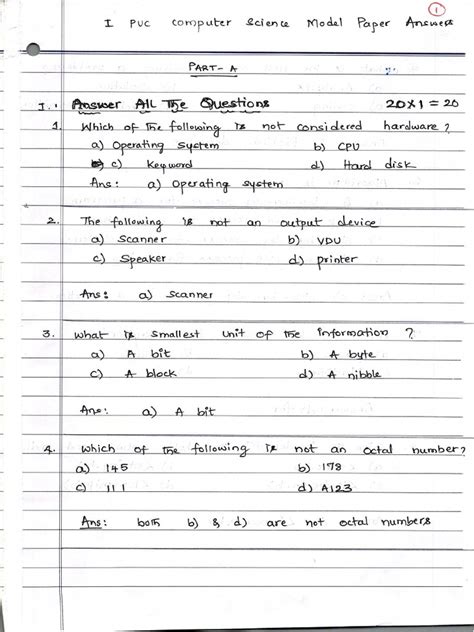 1
I PUC Computer Science Model Paper Answers
PART-A
I. Answer All The Questions 20x1=20
1. Which of the following is not considered hardware?
a) Operating System b) CPU
c) Keyword d) Hard disk
Ans: a) Operating System
2. The following is not an output device
a) Scanner b) VDU
c) Speaker d) printer
Ans: a) Scanner
3. What is smallest unit of the information ?
a) A bit b) A byte
c) A block d) A nibble
Ans: a) A bit
4. Which of the following is not an octal number?
a) 145 b) 178
c) 111 d) A123
Ans: both b) & d) are not octal numbers